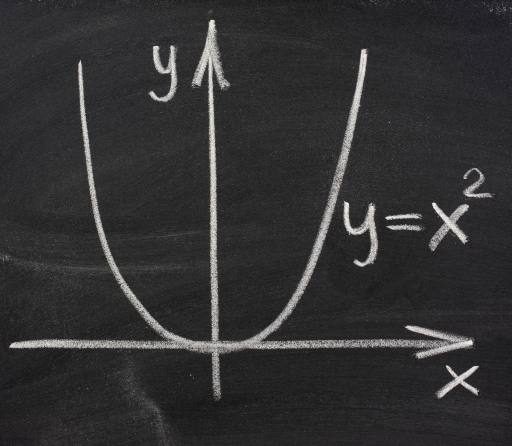 y
y=x²
x